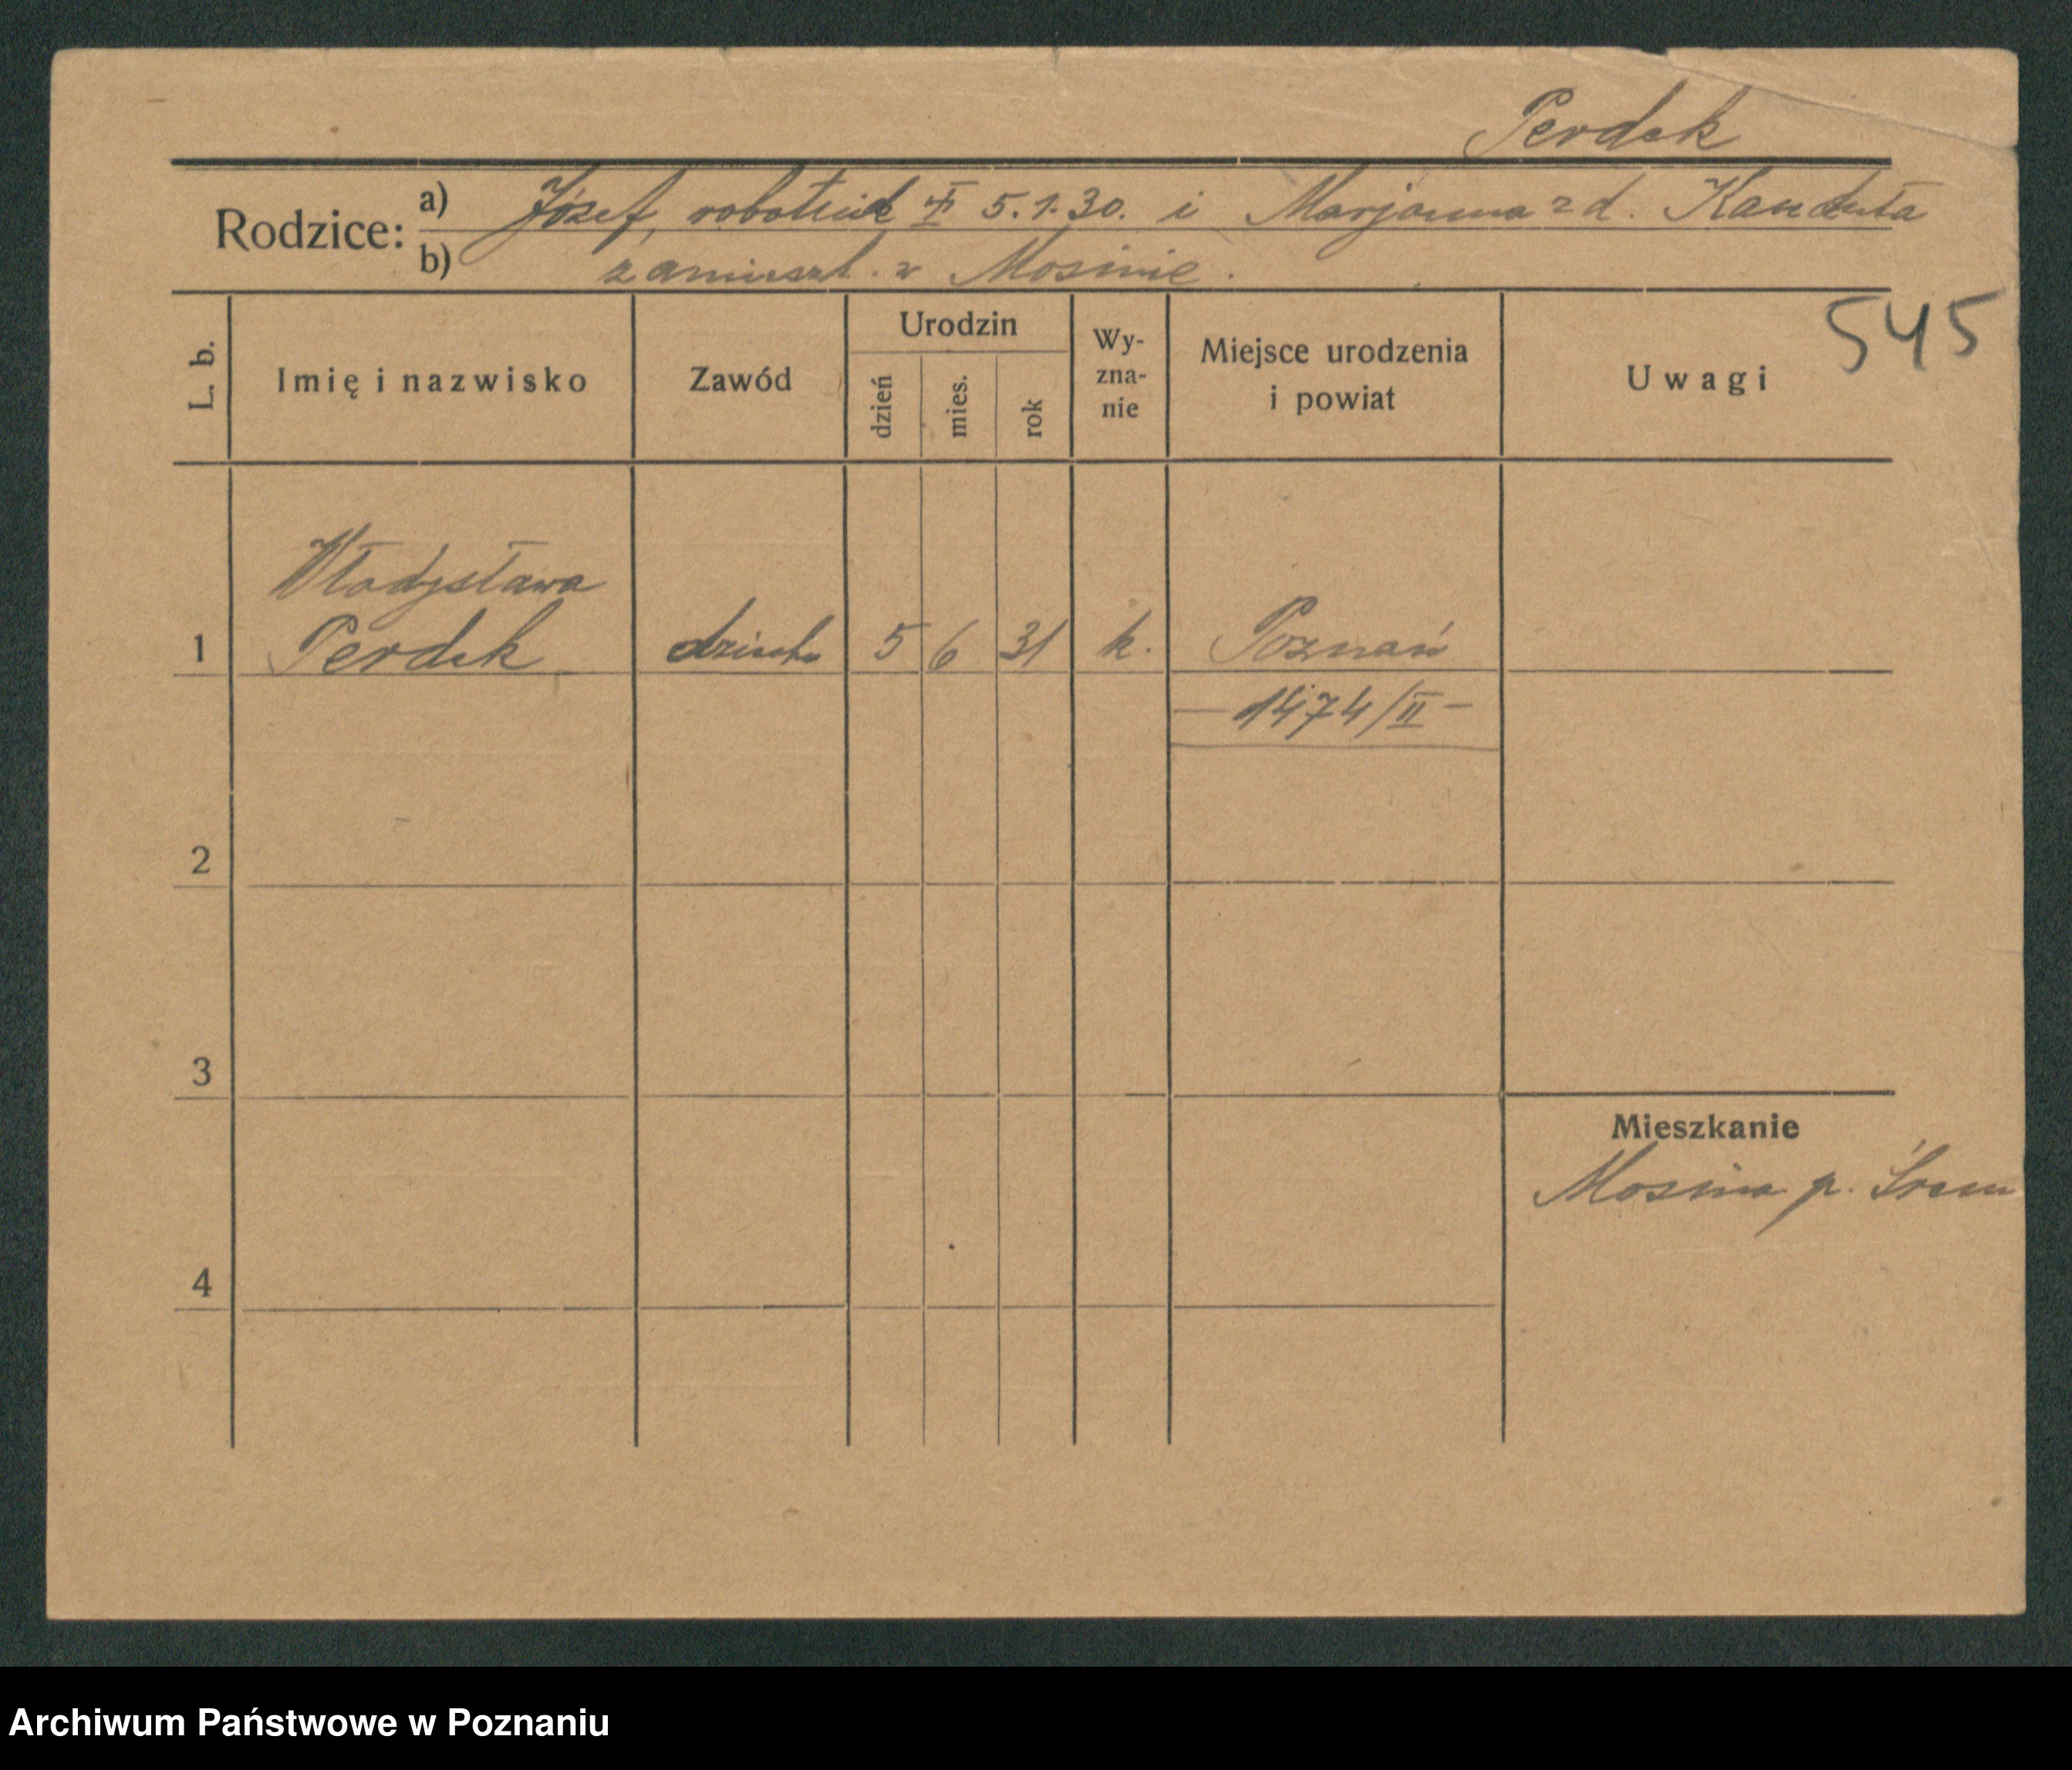 Perdek
Rodzice: a) Józef, robotnik ✝ 5.1.30. i Marjanna z d. Kanduła
b) zamieszk. w Mosinie.
545
L. b. Imię i nazwisko Zawód Urodzin dzień mies. rok Wy-zna-nie Miejsce urodzenia i powiat Uwagi
Władysława
1 Perdek dziecko 5 6 31 k. Poznań
— 1474/II —
2
3
Mieszkanie
Mosina p. Śrem
4
Archiwum Państwowe w Poznaniu